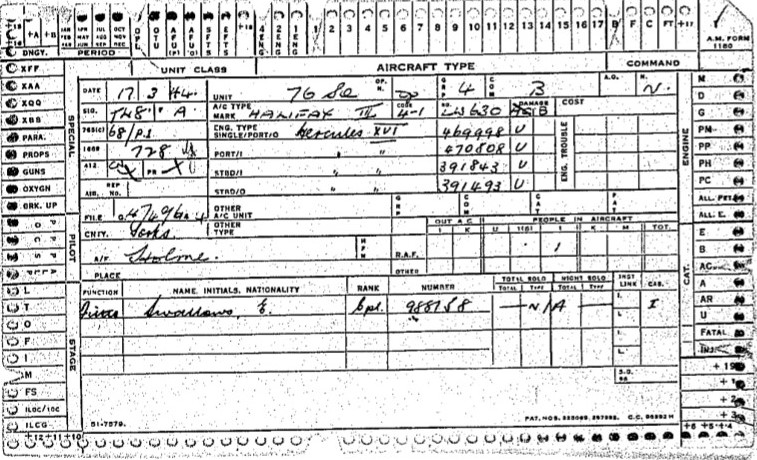 +15 +A +B JAN FEB MAR APR MAY JUN JUL AUG SEP OCT NOV DEC OPL OTU AFU (P) AFU (O) SFTS EFTS +18 4 ENG 2 ENG 1 ENG 1 2 3 4 5 6 7 8 9 10 11 12 13 14 15 16 17 B F C FT +17
A.M. FORM 1180
DNGY. PERIOD
XFF UNIT CLASS AIRCRAFT TYPE COMMAND
XAA
XQQ
XBB
PARA.
PROPS
GUNS
OXYGN
BRK. UP
SPECIAL
DATE 17 3 44. UNIT 76 Sq OP. N. GRP 4 COM B A.O. N. N.
SIG. T48. A A/C TYPE MARK HALIFAX III CODE 4-1 NO. LW630 DAMAGE B COST
765(C) 68/P.S ENG. TYPE SINGLE/PORT/O Hercules XVI 469998 U
1669 728 PORT/I " " 470808 U
412 PR STBD/I " " 391843 U
AIB. REP NO. STBD/O " " 391493 U
ENG. TROUBLE
ENGINE
M
D
G
PM
PP
PH
PC
ALL. PET.
ALL. E.
FILE OTHER A/C UNIT GRP COM CAT FAT
CNTY. Yorks OTHER TYPE OUT A C PEOPLE IN AIRCRAFT
I K U I(S) I K M TOT.
A/F Holme. HFN R.A.F. 1
PLACE OTHER
PILOT
CAT.
E
B
AC
A
AR
U
FATAL
INJ.
FUNCTION NAME, INITIALS, NATIONALITY RANK NUMBER TOTAL SOLO NIGHT SOLO INST LINK CAS.
TOTAL TYPE TOTAL TYPE
Swallow, E. Cpl. 988158 N/A I. I
L.
I.
L.
S.O. 9A
STAGE
L
T
O
F
I
M
FS
ILOC/IOC
ILCG
+19
+1
+2
+3
51-7579. PAT. NOS.
+12 +11 +10 +6 +5 +4